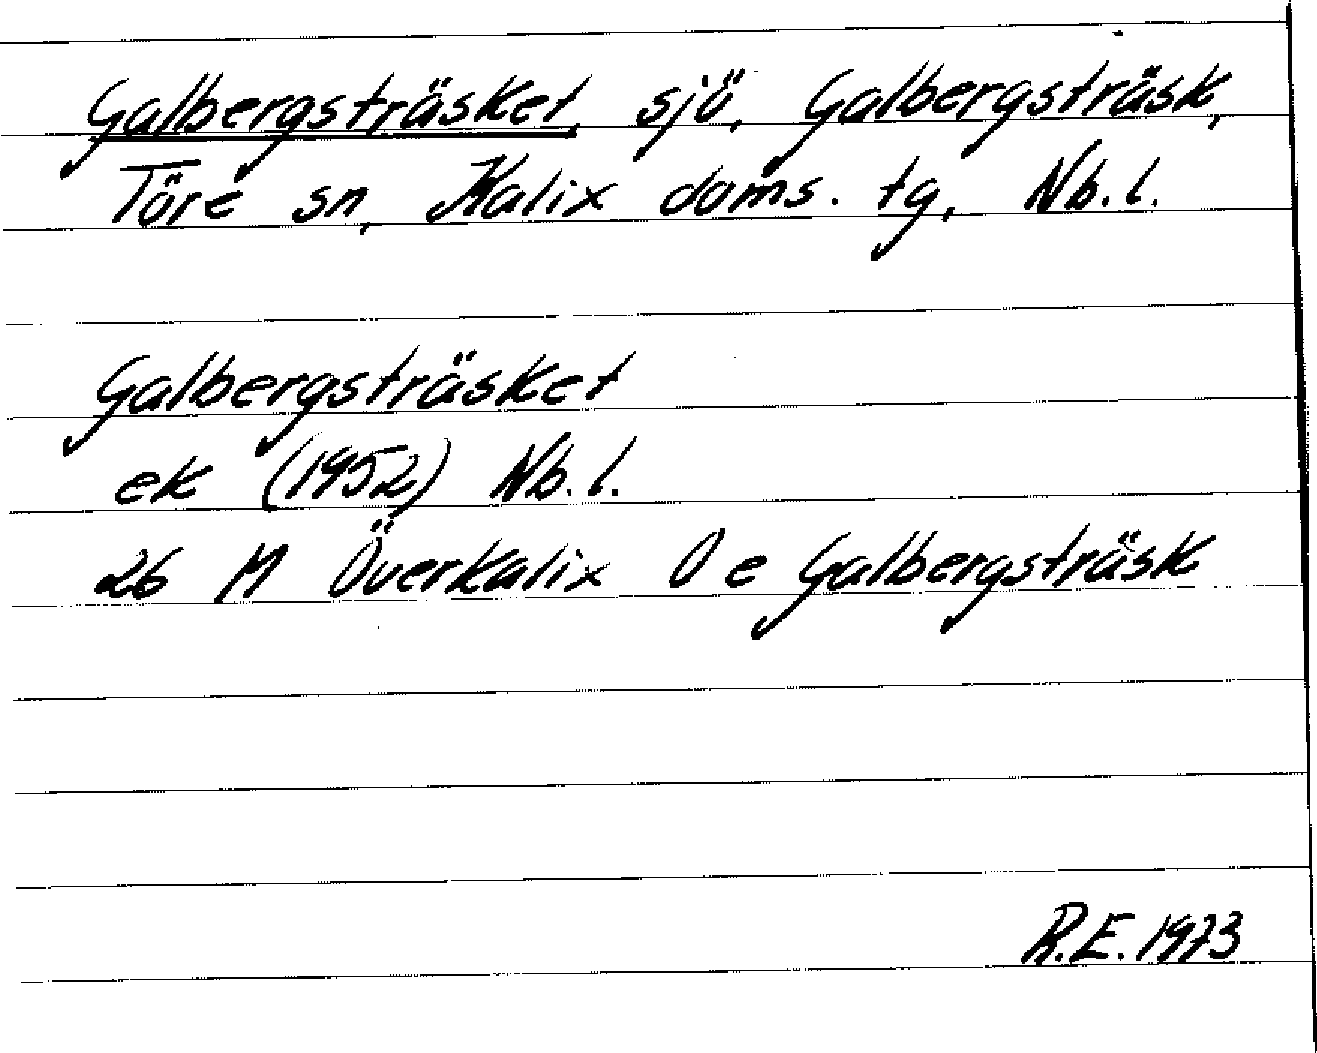 Galbergsträsket, sjö, Galbergsträsk,
Töre sn, Kalix doms. tg, Nb. l.
Galbergsträsket
ek (1952) Nb. l.
26 M Överkalix O e Galbergsträsk
R.E. 1973